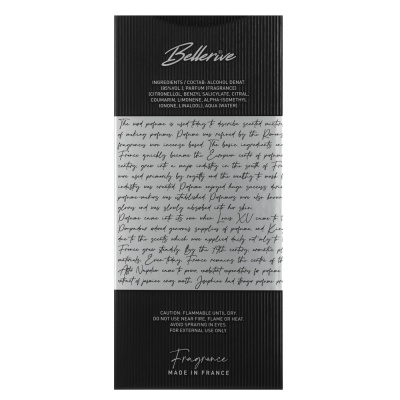 Bellerive
INGREDIENTS / СОСТАВ: ALCOHOL DENAT.
(85%VOL.), PARFUM (FRAGRANCE)
(CITRONELLOL, BENZYL SALICYLATE, CITRAL,
COUMARIN, LIMONENE, ALPHA-ISOMETHYL
IONONE, LINALOOL), AQUA (WATER)
The word perfume is used today to describe scented mixtures
of making perfumes. Perfume was refined by the Romans
fragrances were incense based. The basic ingredients and
France quickly became the European center of perfume
century, grew into a major industry in the south of France
were used primarily by royalty and the wealthy to mask
industry was created. Perfume enjoyed huge success during
perfume making was established. Perfumers were also known
gloves and was slowly absorbed into her skin.
Perfume came into its own when Louis XV came to
Pompadour adored generous supplies of perfume and King
due to the scents which were applied daily not only to
France grew steadily. By the 19th century, aromatic
materials. Even today, France remains the centre of the
After Napoleon came to power exorbitant expenditures for perfume
extract of jasmine every month. Josephine had stronger perfume
CAUTION: FLAMMABLE UNTIL DRY.
DO NOT USE NEAR FIRE, FLAME OR HEAT.
AVOID SPRAYING IN EYES.
FOR EXTERNAL USE ONLY
Fragrance
MADE IN FRANCE